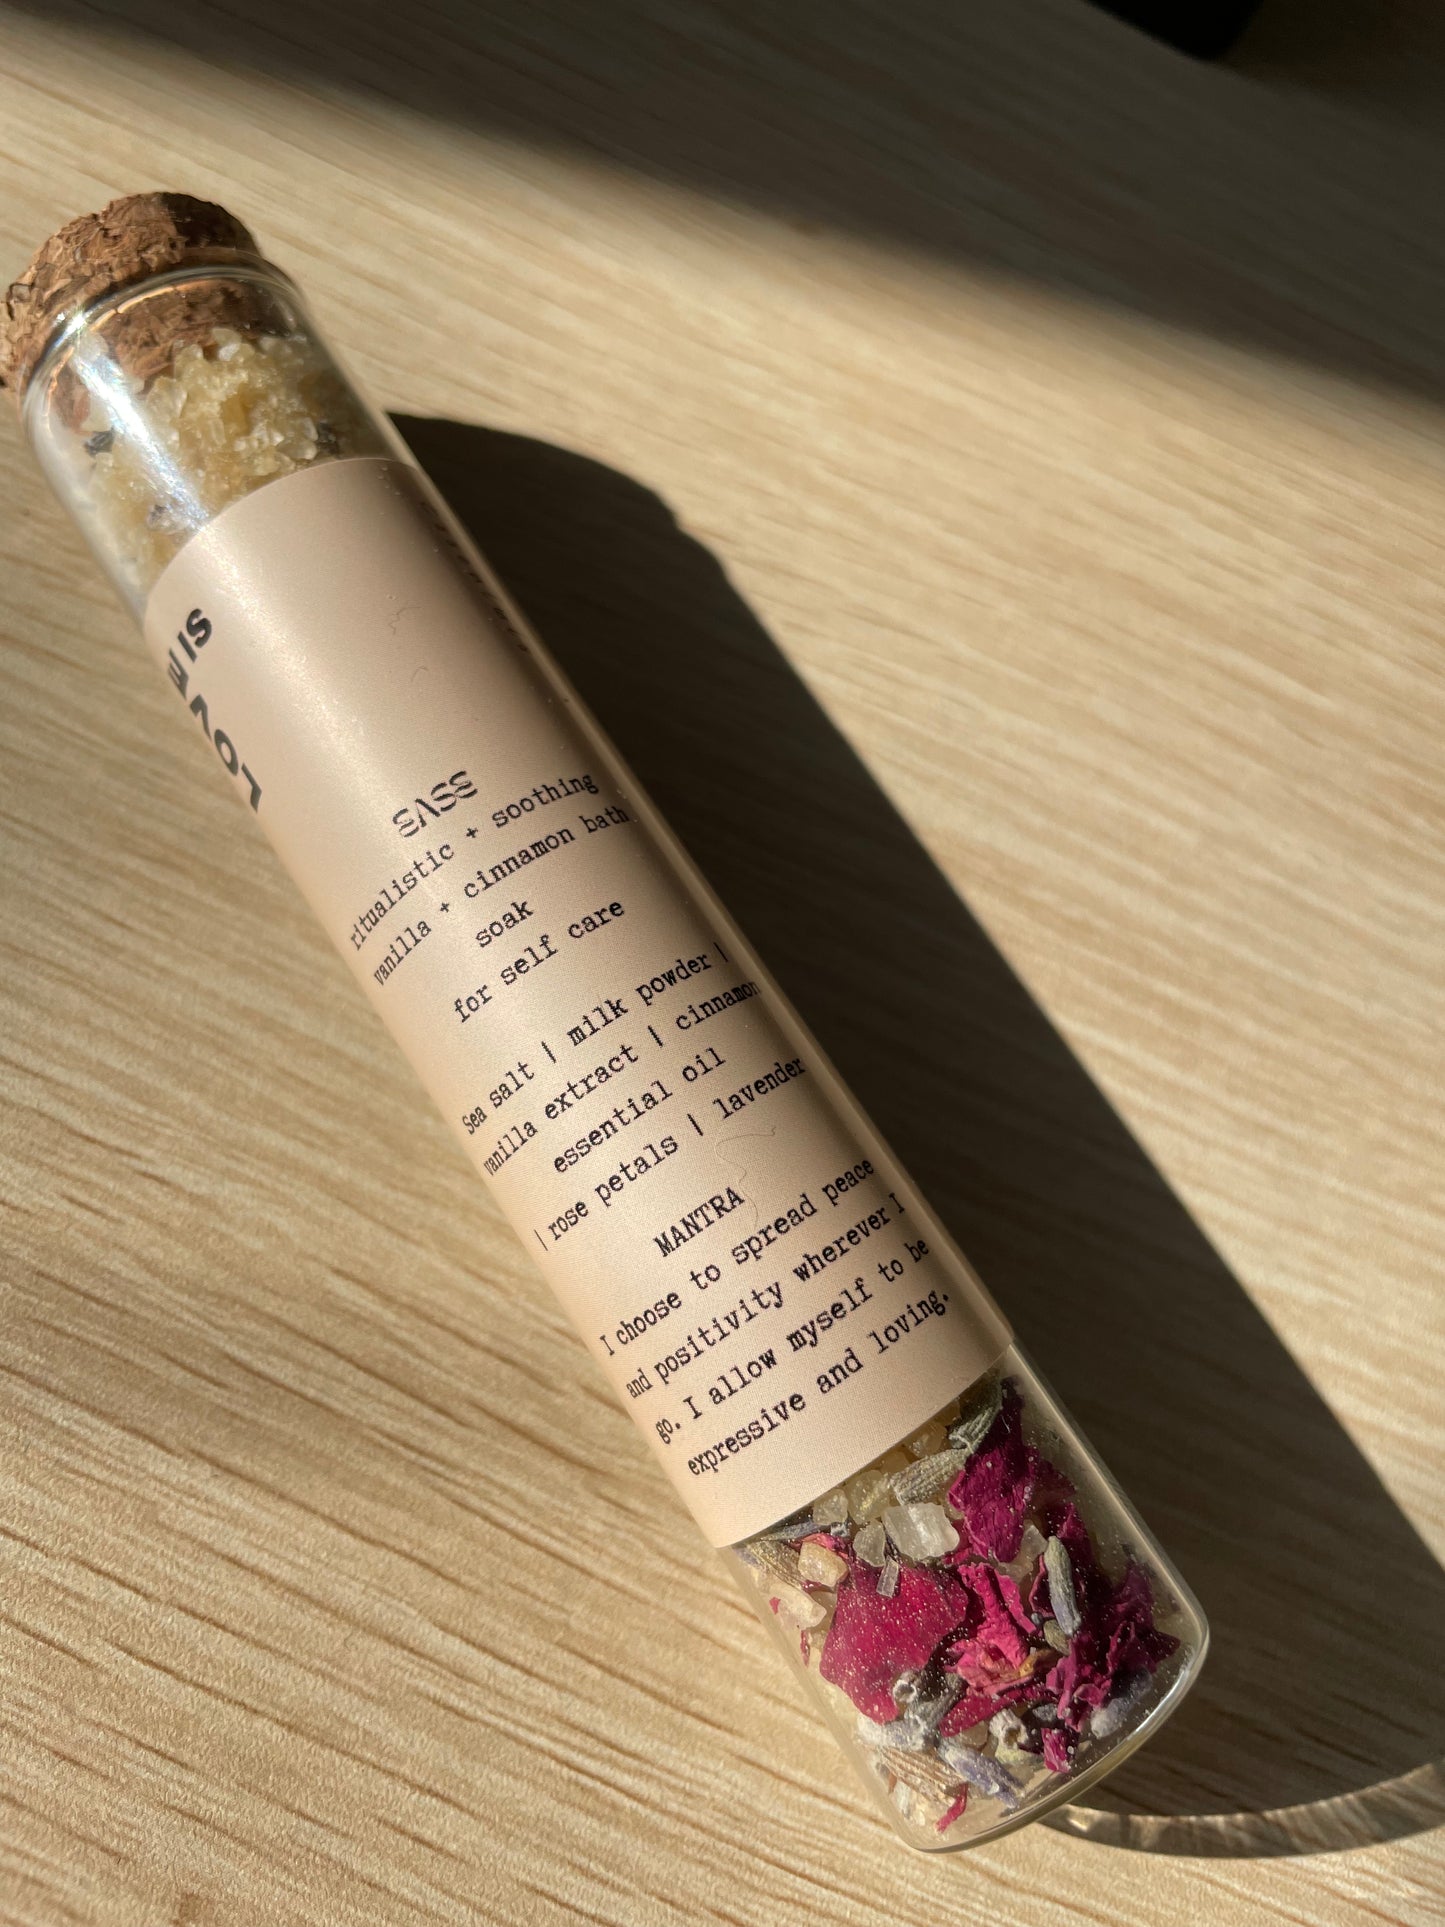 LOVE
IS
ritualistic + soothing
vanilla + cinnamon bath
soak
for self care
Sea salt | milk powder |
vanilla extract | cinnamon
essential oil
| rose petals | lavender
MANTRA
I choose to spread peace
and positivity wherever I
go. I allow myself to be
expressive and loving.